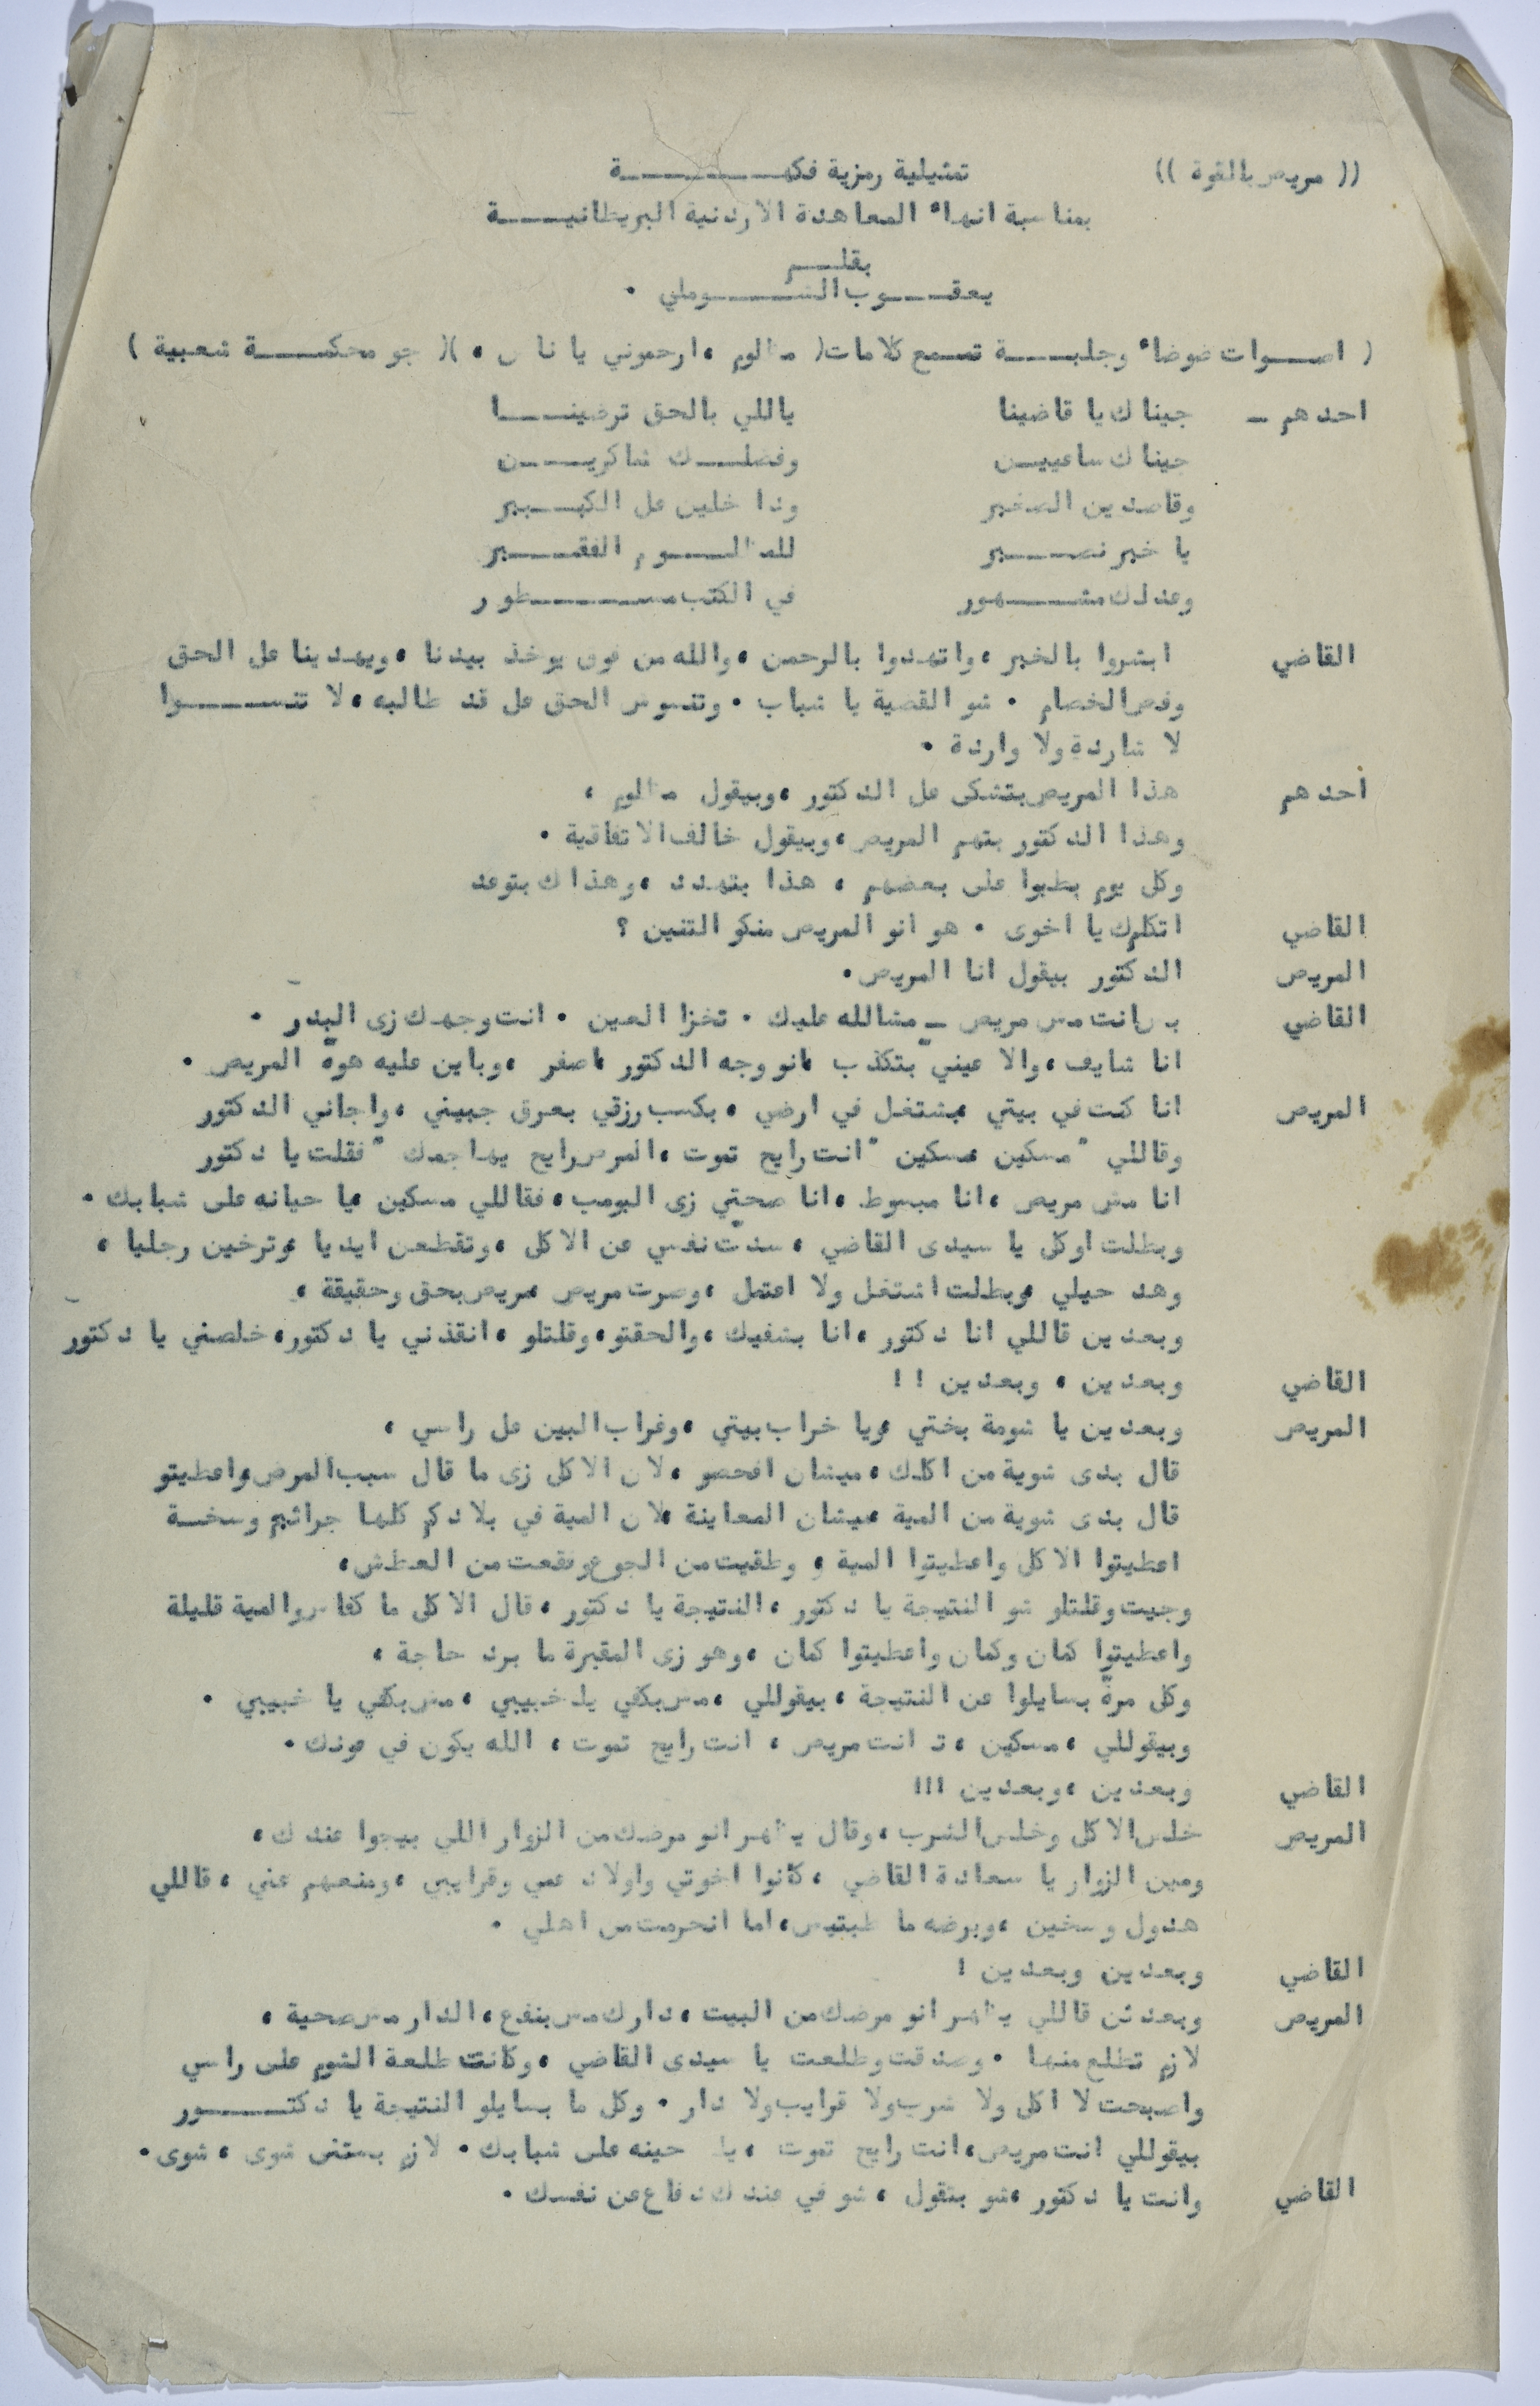 (( مريض بالقوة ))    تمثيلية رمزية فكهـــــــــة
بمناسبة انهاء المعاهدة الاردنية البريطانيـــــة
بقلـــم
يعقـــوب الشـــــوملي .
( اصـــوات ضوضاء وجلبـــة تسمع كلامات ( مظلوم ، ارحموني يا ناس ، )( جو محكمـــــة شعبية )
احدهم ــ    جيناك يا قاضينا    ياللي بالحق ترضينـــــا
جيناك ساعييـــن    وفضلـــك شاكريـــــن
وقاصدين الصغير    وداخلين عل الكبـــير
يا خير نصـــــير    للمظلـــــوم الفقـــــير
وعدلك مشـــــهور    في الكتب مســـــــطور
القاضي    ابشروا بالخير ، واتهدوا بالرحمن ، والله من فوق يوخذ بيدنا ، ويهدينا عل الحق
وفض الخصام . شو القضية يا شباب . وتنسوش الحق عل قد طالبه ، لا تنســـــوا
لا شاردة ولا واردة .
احدهم    هذا المريض بتشكى عل الدكتور ، وبيقول مظلوم ،
وهذا الدكتور بتهم المريض ، وبيقول خالف الاتفاقية .
وكل يوم بطبوا على بعضهم ، هذا بتهدد ، وهذاك بتوعد
القاضي    اتكلم يا اخوى . هو انو المريض منكو التنين ؟
المريض    الدكتور بيقول انا المريض .
القاضي    بس انت مش مريض ــ مشالله عليك . تخزا العين . انت وجهك زى البدر .
انا شايف ، والا عينيّ بتكذب انو وجه الدكتور اصفر ، وباين عليه هوّه المريض .
المريض    انا كنت في بيتي بشتغل في ارضي ، بكسب رزقي بعرق جبيني ، واجاني الدكتور
وقاللي " مسكين مسكين " انت رايح تموت ، المرض رايح يهاجمك " فقلت يا دكتور
انا مش مريض ، انا مبسوط ، انا صحتي زى البومب ، فقاللي مسكين يا حيانه على شبابك .
وبطلت اوكل يا سيدى القاضي ، سدّت نفسي عن الاكل ، وتقطعن ايديا وترخين رجليا ،
وهد حيلي وبطلت اشتغل ولا اعتمل ، وصرت مريض مريض بحق وحقيقة ،
وبعدين قاللي انا دكتور ، انا بشفيك ، والحقتو ، وقلتلو ، انقذني يا دكتور ، خلصني يا دكتور
القاضي    وبعدين ، وبعدين ! !
المريض    وبعدين يا شومة بختي ويا خراب بيتي ، وغراب البين عل راسي ،
قال بدى شوية من اكلك ، ميشان افحصو ، لان الاكل زى ما قال سبب المرض واعطيتو
قال بدى شوية من المية ميشان المعاينة لان المية في بلادكم كلها جراثيم وسخـــة
اعطيتوا الاكل واعطيتوا المية و وطقيت من الجوع ونقعت من العطش ،
وجيت وقلتلو شو النتيجة يا دكتور ، النتيجة يا دكتور ، قال الاكل ما كفاس والمية قليلة
واعطيتوا كمان وكمان واعطيتوا كمان ، وهو زى المقبرة ما برد حاجة ،
وكل مرةّ بسايلوا عن النتيجة ، بيقوللي ، مش بكفي يا خبيبي ، مش بكفي يا خبيبي .
وبيقوللي ، مسكين ، انت مريض ، انت رايح تموت ، الله يكون في عونك .
القاضي    وبعدين ، وبعدين !!!
المريض    خلص الاكل وخلص الشرب ، وقال يظهر انو مرضك من الزوار اللي بيجوا عندك ،
ومين الزوار يا سعادة القاضي ، كانوا اخوتي واولاد عمي وقرايبي ، ومنعهم عني ، قاللي
هدول وسخين ، وبرضه ما طبتيس ، اما انحرمت من اهلي .
القاضي    وبعدين وبعدين !
المريض    وبعدئن قاللي يظهر انو مرضك من البيت ، دارك مش بنفع ، الدار مش صحية ،
لازم تطلع منها . وصدقت وطلعت يا سيدى القاضي ، وكانت طلعة الشوم على راسي
واصبحت لا اكل ولا شرب ولا قرايب ولا دار . وكل ما بسايلو النتيجة يا دكتـــــور
بيقوللي انت مريض ، انت رايح تموت ، يا حينه على شبابك . لازم بستنى شوى ، شوى .
القاضي    وانت يا دكتور ، شو بتقول ، شو في عندك دفاع عن نفسك .